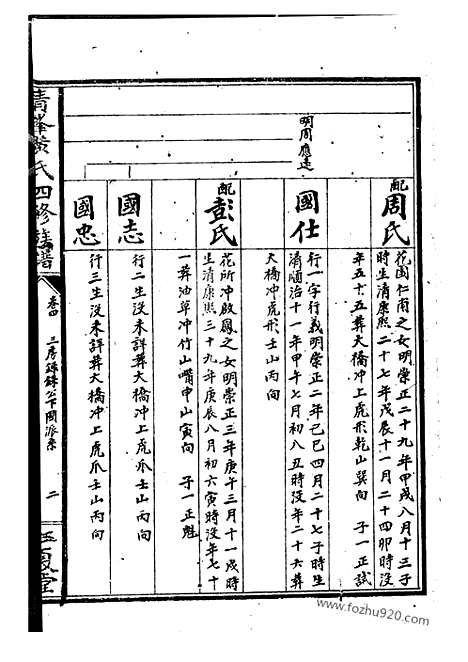 明周應廷
配周氏
花園仁甫之女明崇正二十九年甲戌八月十三子
時生清康熙二十七年戊辰十一月二十四卯時没
年五十五葬大橋冲上虎形乾山巽向 子一正試
國仕
行一字行義明崇正二年己巳四月二十七子時生
清順治十一年甲午七月初八丑時没年二十六葬
大橋冲虎形壬山丙向
配彭氏
花所冲啟鳳之女明崇正三年庚午三月十一戌時
生清康熙三十九年庚辰八月初六寅時没年七十
一葬油草冲竹山嘴申山寅向 子一正魁
國志
行二生没未詳葬大橋冲上虎爪壬山丙向
國忠
行三生没未詳葬大橋冲上虎爪壬山丙向
清峰黄氏四修族譜
卷四 三房 公下閏派系
二
www.fozhu920.com